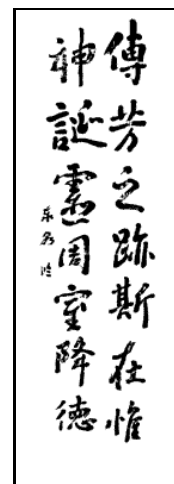 傳芳之跡斯在惟
神誕靈周室降德